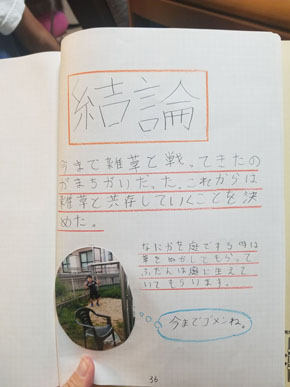 結論
今まで雑草と戦ってきたの
がまちがいだった。これからは
雑草と共存していくことを決
めた。
なにかを庭でする時は
草をぬかしてもらって
ふだんは庭に生えて
いてもらいます。
今までゴメンね。
36